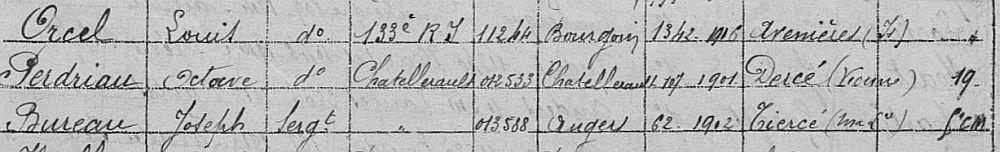 Orcel Louis d° 133e R I 11244 Bourgoin 1342 1916 Avenières (I)
Perdriau Octave d° Chatellerault 012533 Chatellerault 1901 Dercé (Vienne) 19.
Bureau Joseph Sergt " 013588 Angers 62 1902 Tiercé